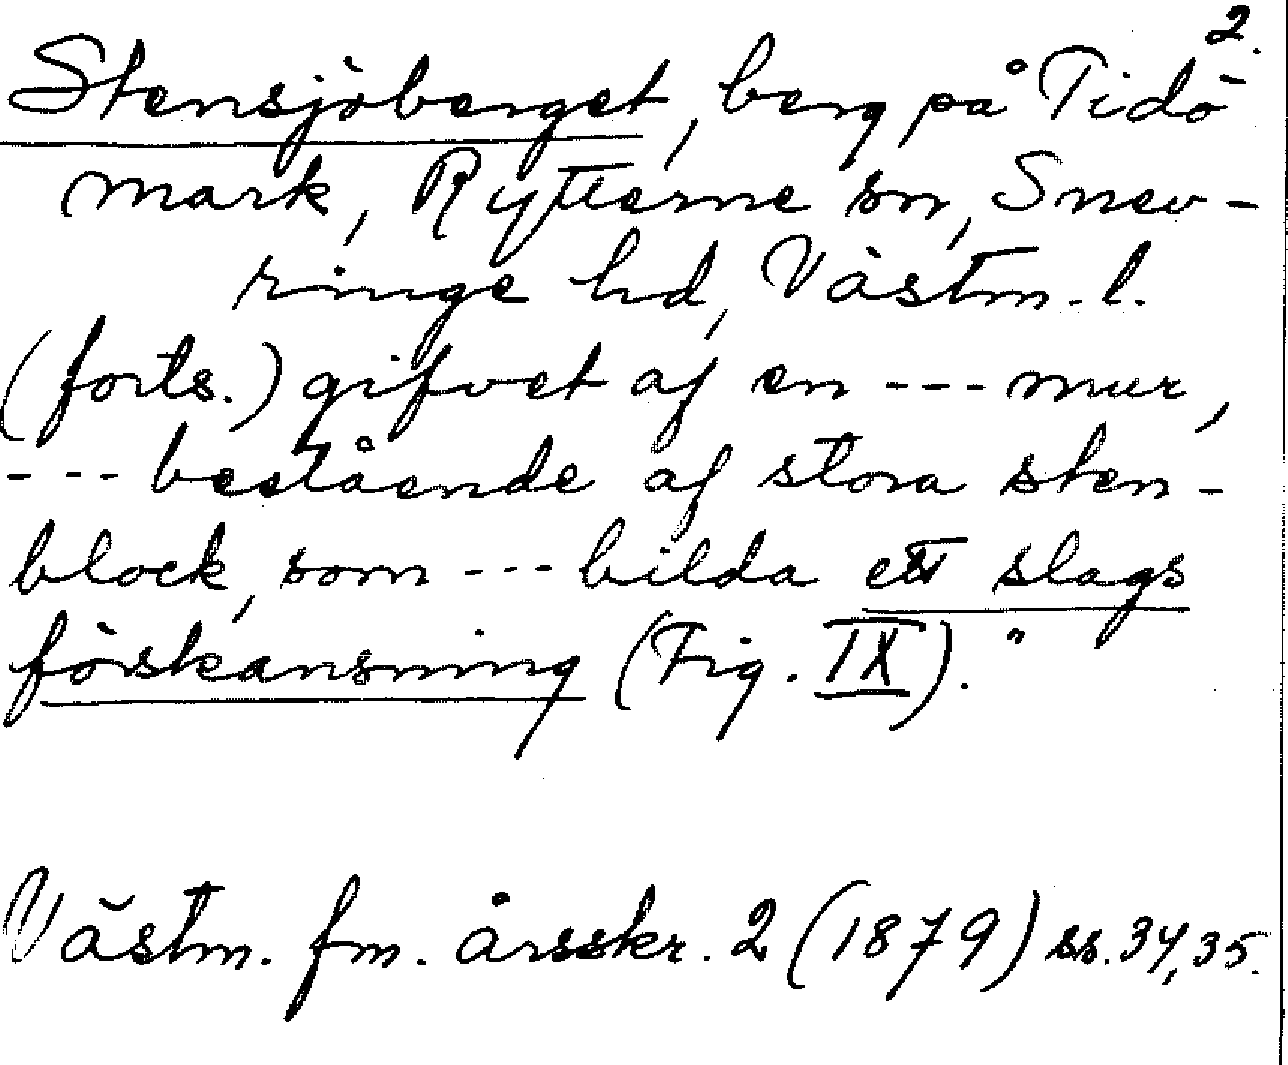 2.
Stensjöberget, berg på Tidö
mark, Rytterne sn, Snev-
ringe hd, Västm. l.
(forts.) gifvet af en --- mur,
--- bestående af stora sten-
block, som --- bilda ett slags
förskansning (Fig. IX)."
Västm. fm. årsskr. 2 (1879) ss. 34, 35.